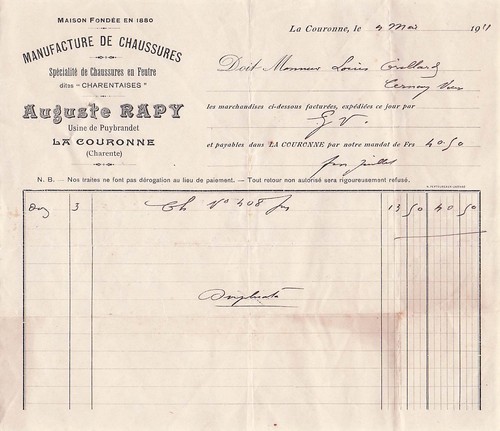 MAISON FONDÉE EN 1880
MANUFACTURE DE CHAUSSURES
Spécialité de Chaussures en Feutre
dites "CHARENTAISES"
Auguste RAPY
Usine de Puybrandet
LA COURONNE
(Charente)
La Couronne, le 4 Mai 1911
Doit Monsieur Louis
les marchandises ci-dessous facturées, expédiées ce jour par
G V.
et payables dans LA COURONNE par notre mandat de Frs 40.50
fin juillet
N. B. — Nos traites ne font pas dérogation au lieu de paiement. — Tout retour non autorisé sera rigoureusement refusé.
3 Ch No 408 13 50 40 50
Duplicata